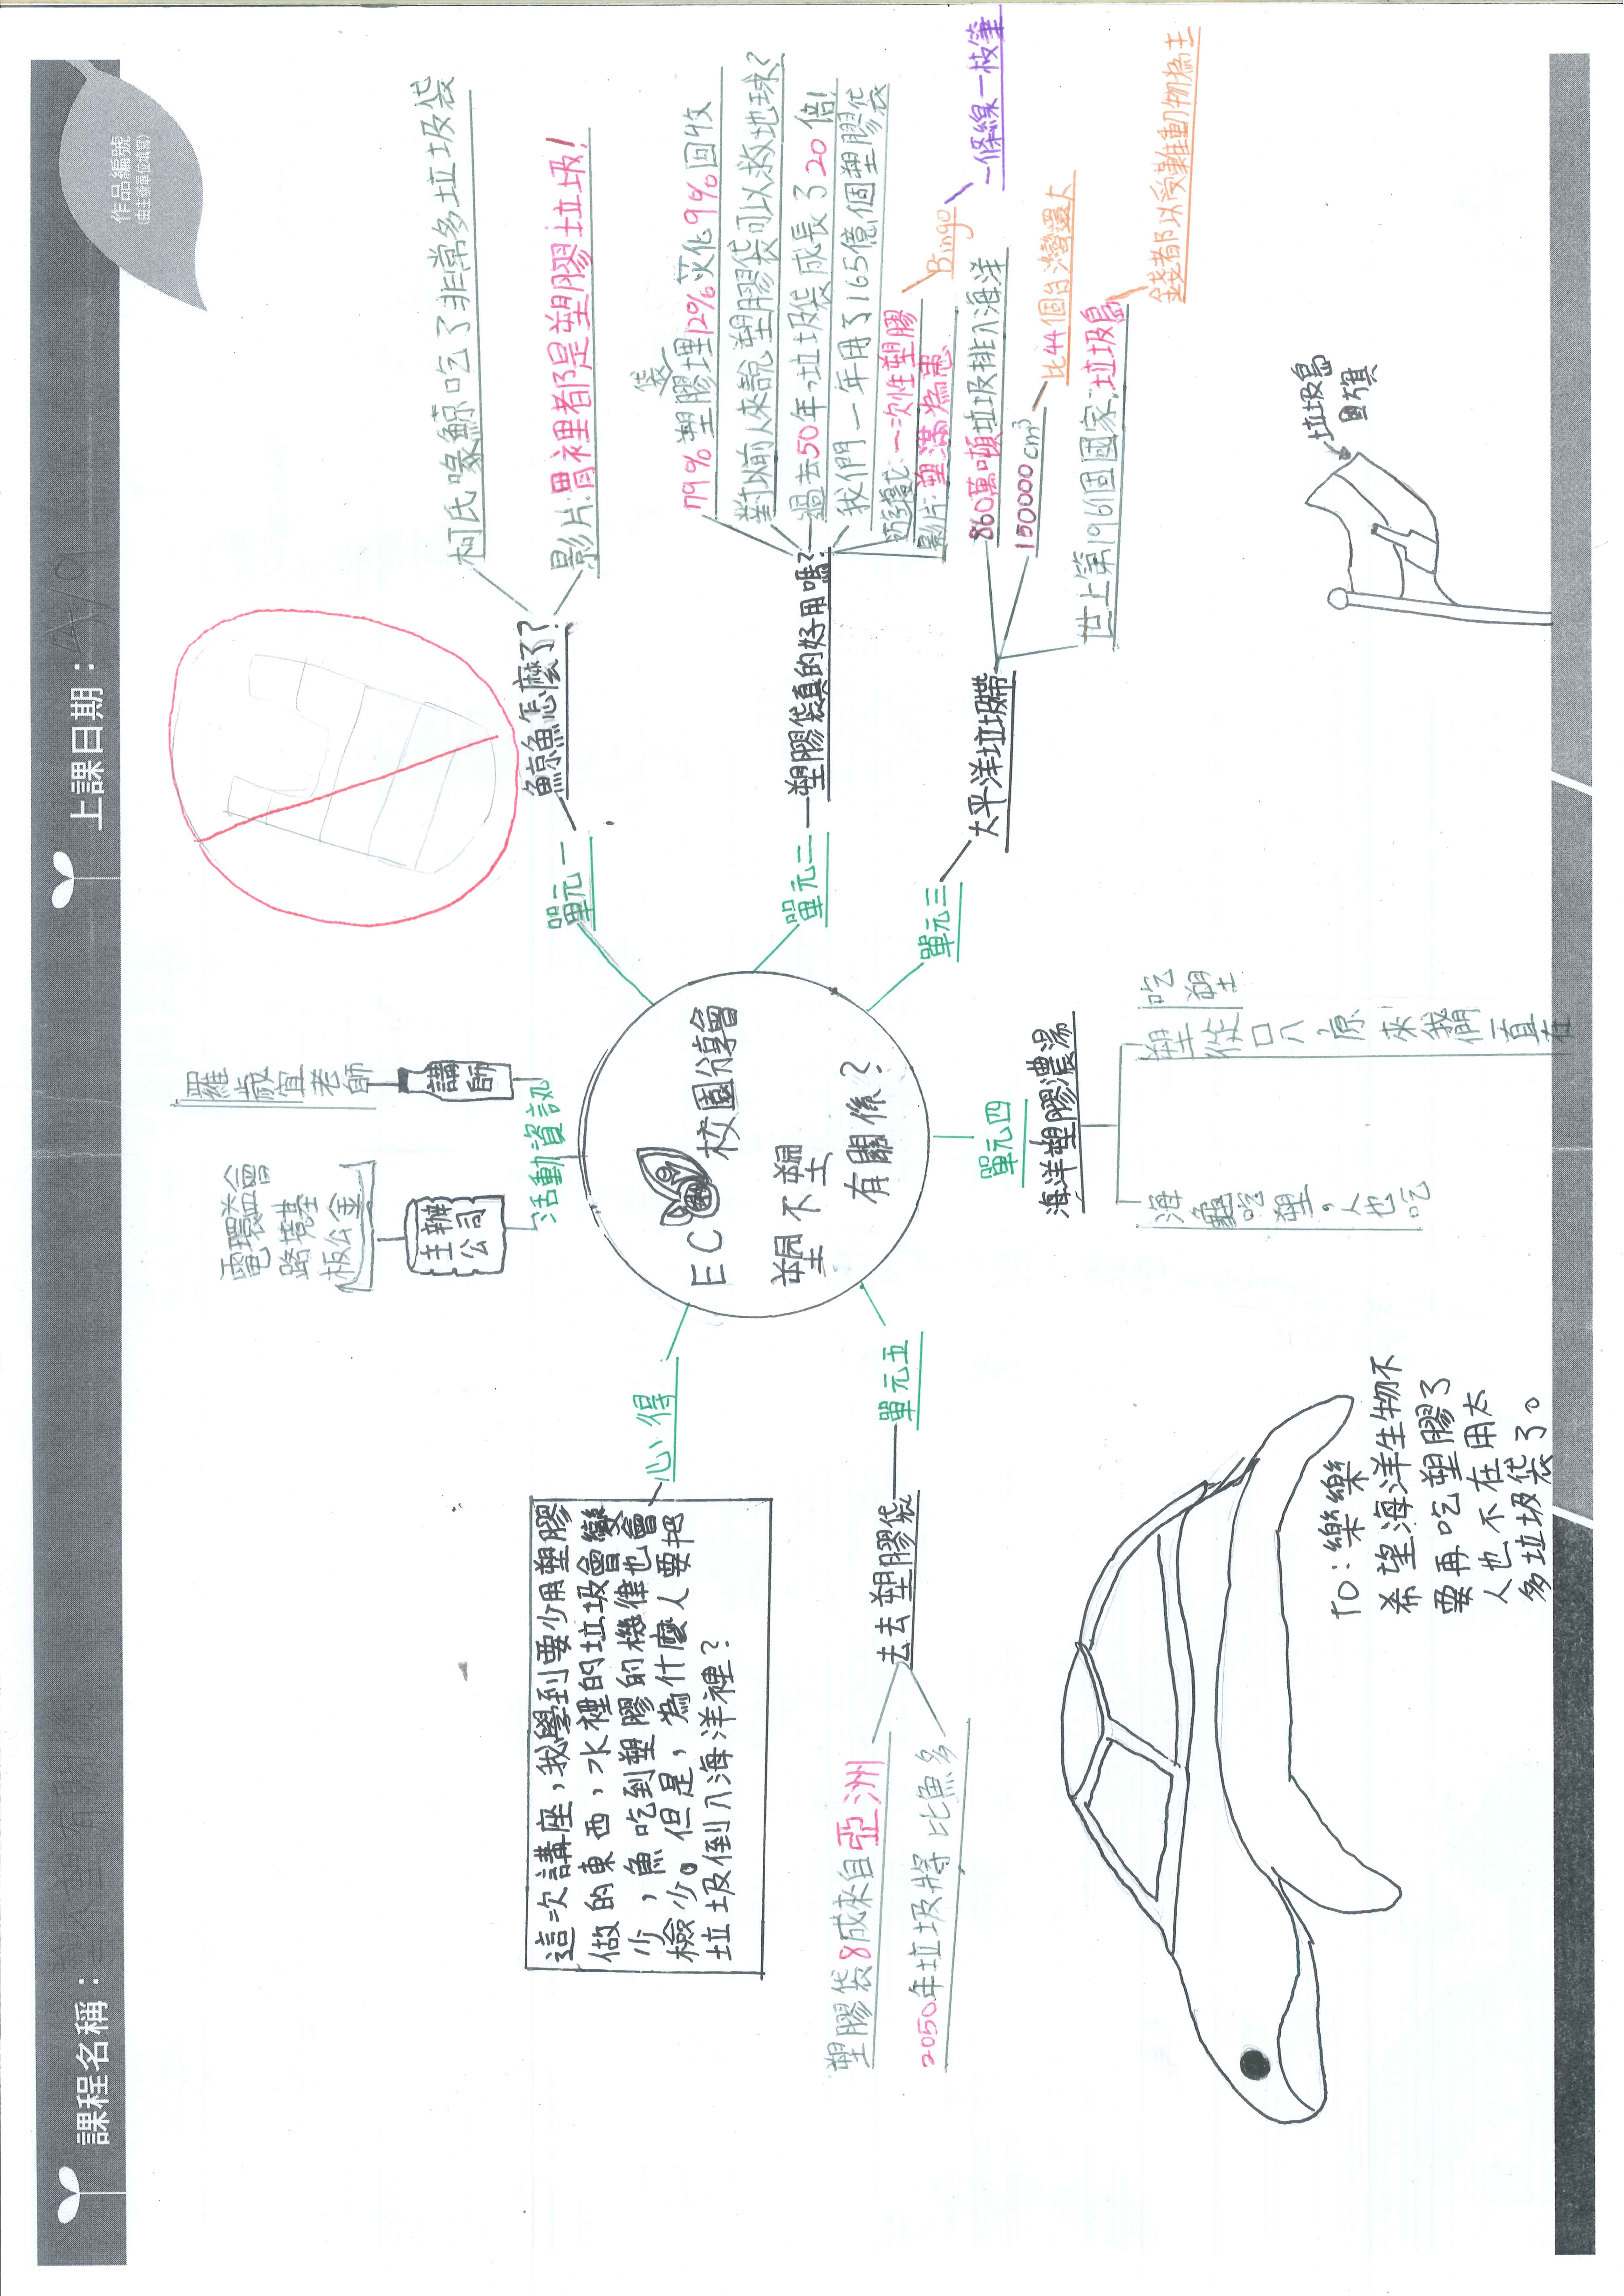 課程名稱：塑不塑有關係
上課日期：4/01
作品編號
(由主辦單位填寫)
ECO校園分享會
塑不塑
有關係？
活動資訊
主辦
公司
電路板
環境公
益基金會
講師
老師
單元一
鯨魚怎麼了？
柯氏喙鯨吃了非常多垃圾袋
影片：胃裡都是塑膠垃圾！
單元二
塑膠袋真的好用嗎？
79%塑膠袋埋12%焚化9%回收
對以前人來說塑膠袋可以救地球？
過去50年，垃圾袋成長了20倍！
我們一年用了165億個塑膠袋
一次性塑膠
影片：塑滿為患
Bingo
一條線一枝筆
單元三
太平洋垃圾帶
860萬噸垃圾排入海洋
150000cm³
比44個台灣還大
世上第196個國家：垃圾島
錢都以受難動物為主
垃圾島
國旗
單元四
海洋塑膠濃湯
海龜吃塑，人也吃
塑從口入原來我們一直在
吃塑
單元五
去去塑膠袋
塑膠袋8成來自亞洲
2050年垃圾將比魚多
心得
這次講座，我學到要少用塑膠
做的東西，水裡的垃圾會變
少，魚吃到塑膠的機律也會
檢少。但是，為什麼人要把
垃圾倒入海洋裡？
To：樂樂
希望海洋生物不
要再吃塑膠了
人也不在用太
多垃圾袋了。